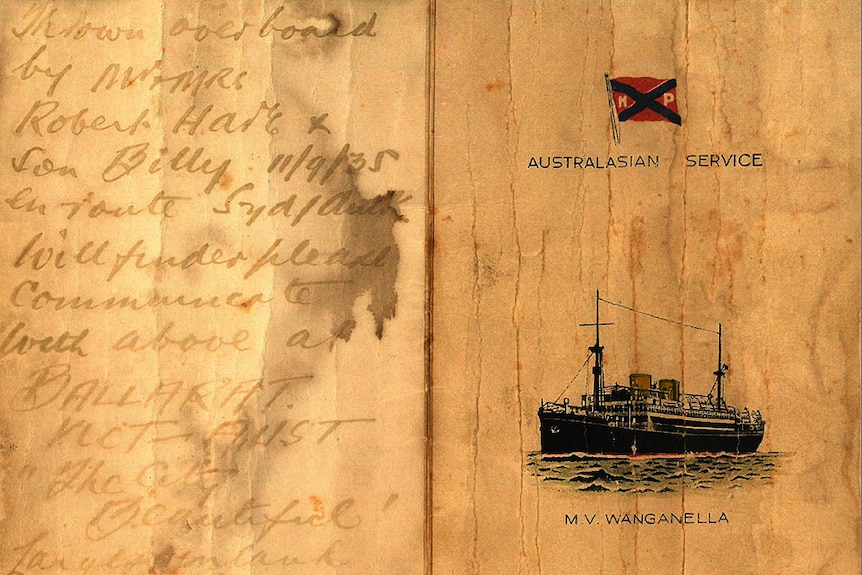 Thrown overboard
by Mr & MRS
Robert
Son Billy. 11/9/35
en route
Will finder please
Communicate
with above at
BALLARAT.
VICT - AUST
"The City
Beautiful"
H P
AUSTRALASIAN SERVICE
M.V. WANGANELLA